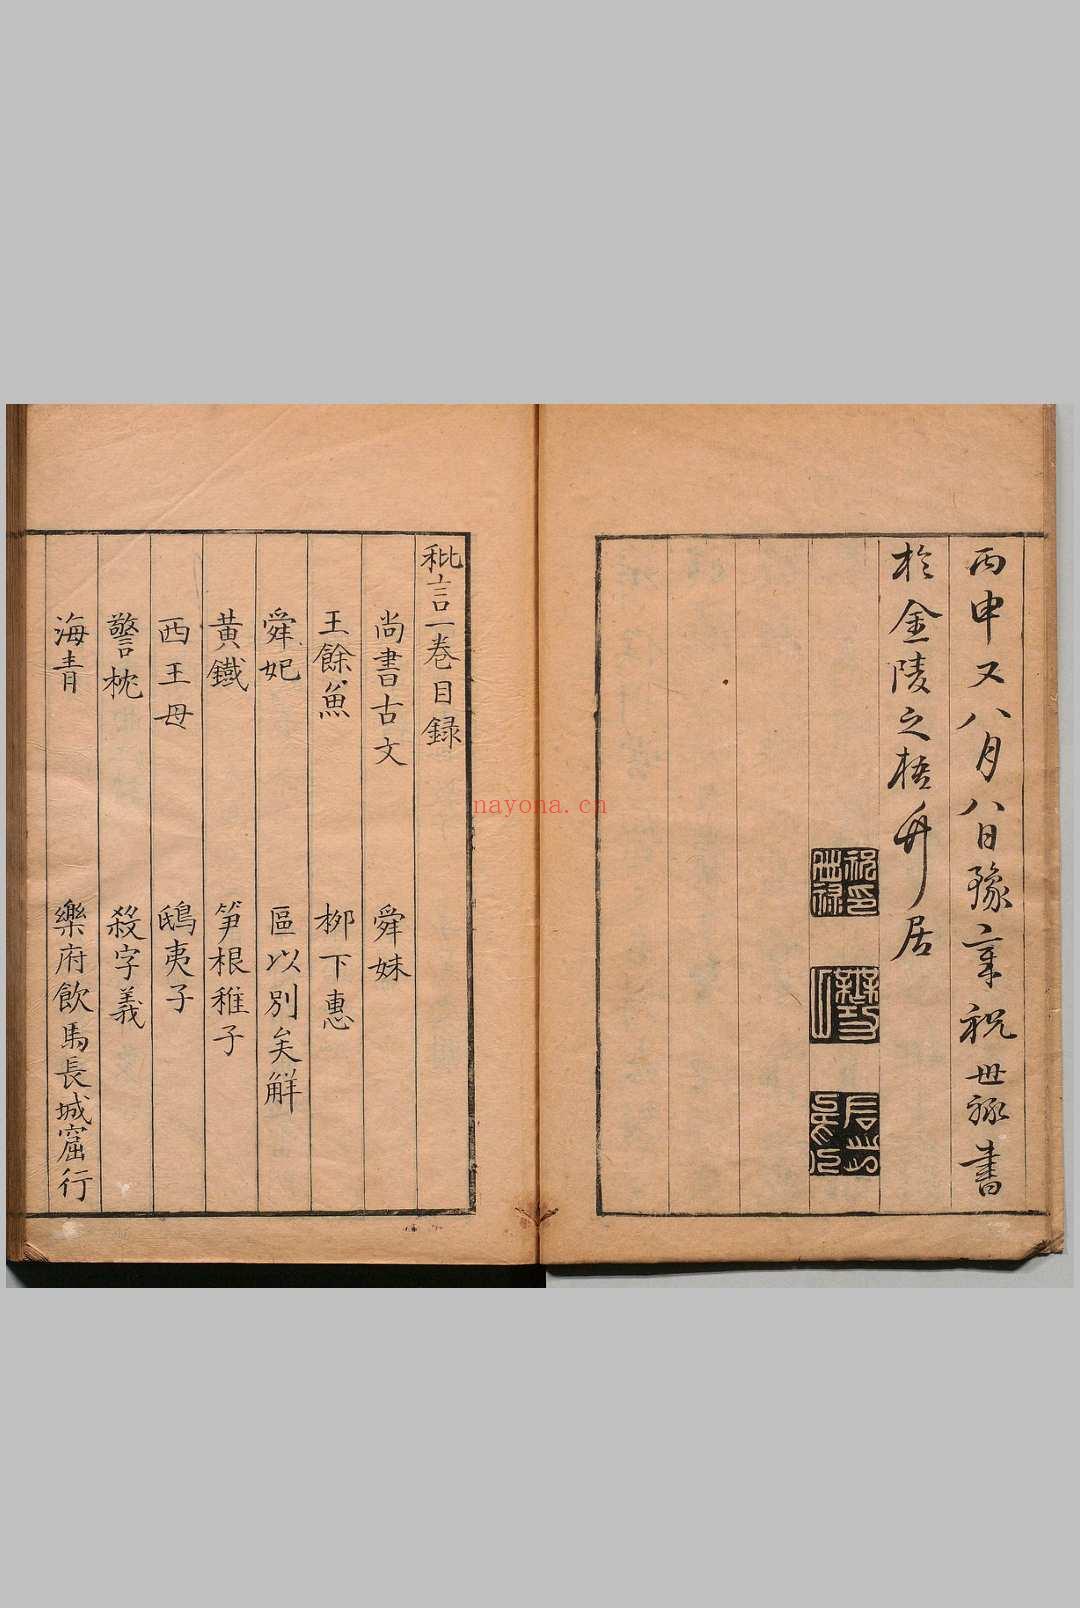 丙申又八月八日豫章祝世祿書
於金陵之梧竹居
祝印世祿
秕言一卷目録
尚書古文 舜妹
王餘魚 柳下惠
舜妃 區以別矣解
黃鐵 笋根稚子
西王母 鴟夷子
警枕 殺字義
海青 樂府飲馬長城窟行
nayona.cn